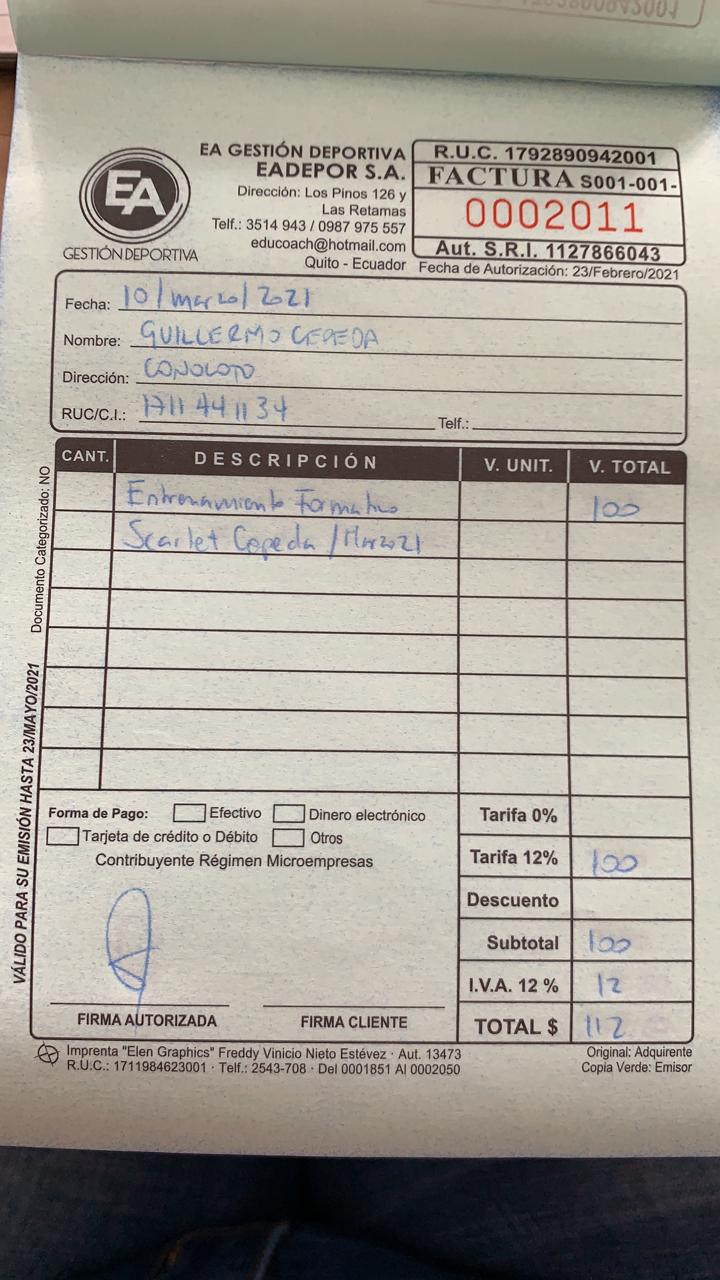 EA GESTIÓN DEPORTIVA
EADEPOR S.A.
Dirección: Los Pinos 126 y
Las Retamas
Telf.: 3514 943 / 0987 975 557
educoach@hotmail.com
Quito - Ecuador
EA
GESTIÓN DEPORTIVA
R.U.C. 1792890942001
FACTURA S001-001-
0002011
Aut. S.R.I. 1127866043
Fecha de Autorización: 23/Febrero/2021
Fecha: 10/marzo/2021
Nombre: GUILLERMO CEPEDA
Dirección: CONOCOTO
RUC/C.I.: 1711441134 Telf.:
CANT. DESCRIPCIÓN V. UNIT. V. TOTAL
Entrenamiento Formativo 100
Scarlet Cepeda / Marzo21
Documento Categorizado: NO
VÁLIDO PARA SU EMISIÓN HASTA 23/MAYO/2021
Forma de Pago: Efectivo Dinero electrónico
Tarjeta de crédito o Débito Otros
Contribuyente Régimen Microempresas
Tarifa 0%
Tarifa 12% 100
Descuento
Subtotal 100
I.V.A. 12 % 12
TOTAL $ 112
FIRMA AUTORIZADA FIRMA CLIENTE
Imprenta "Elen Graphics" Freddy Vinicio Nieto Estévez · Aut. 13473
R.U.C.: 1711984623001 · Telf.: 2543-708 · Del 0001851 Al 0002050
Original: Adquirente
Copia Verde: Emisor